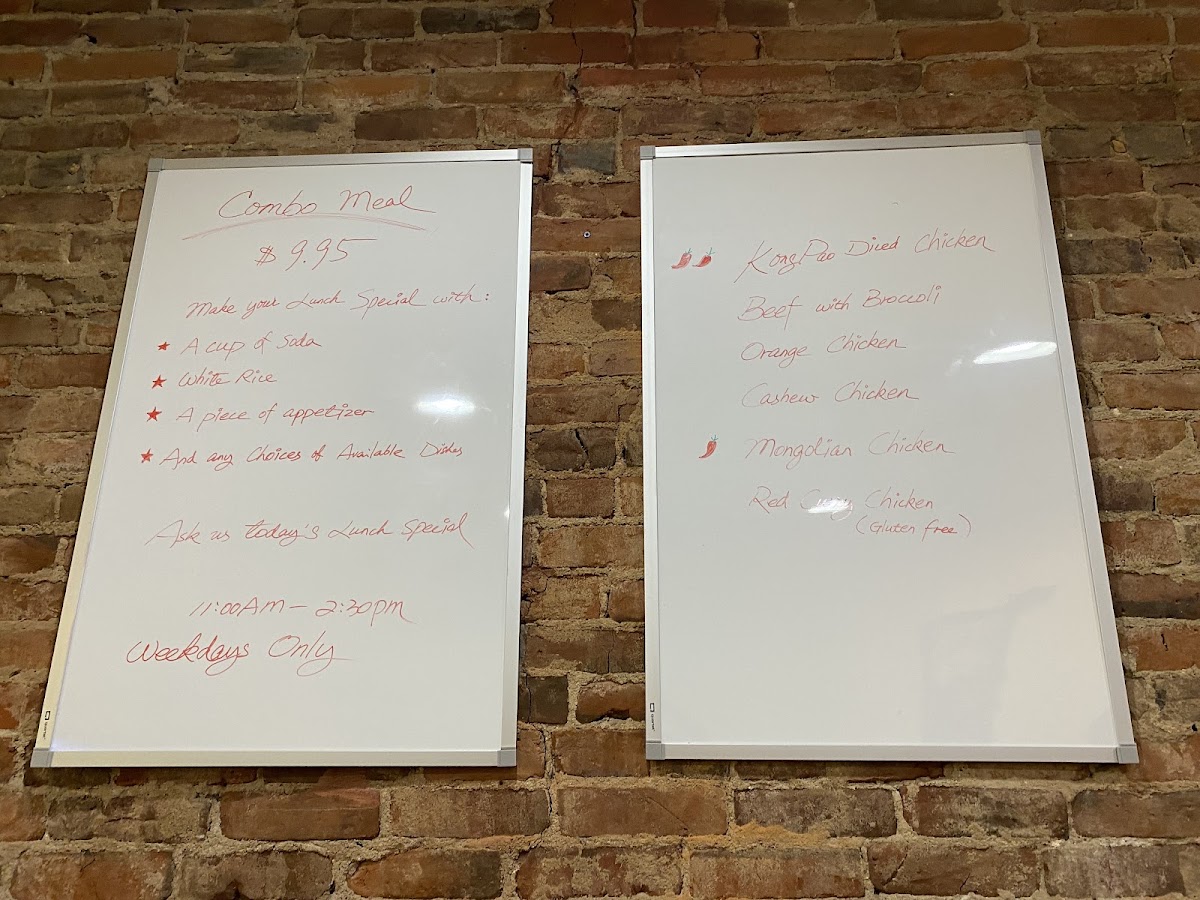 Combo Meal
$ 9.95
Make your Lunch Special with:
★ A cup of Soda
★ White Rice
★ A piece of appetizer
★ And any Choices of Available Dishes
Ask us today's Lunch Special
11:00AM - 2:30pm
Weekdays Only
KongPao Diced Chicken
Beef with Broccoli
Orange Chicken
Cashew Chicken
Mongolian Chicken
Red Curry Chicken
(Gluten free)